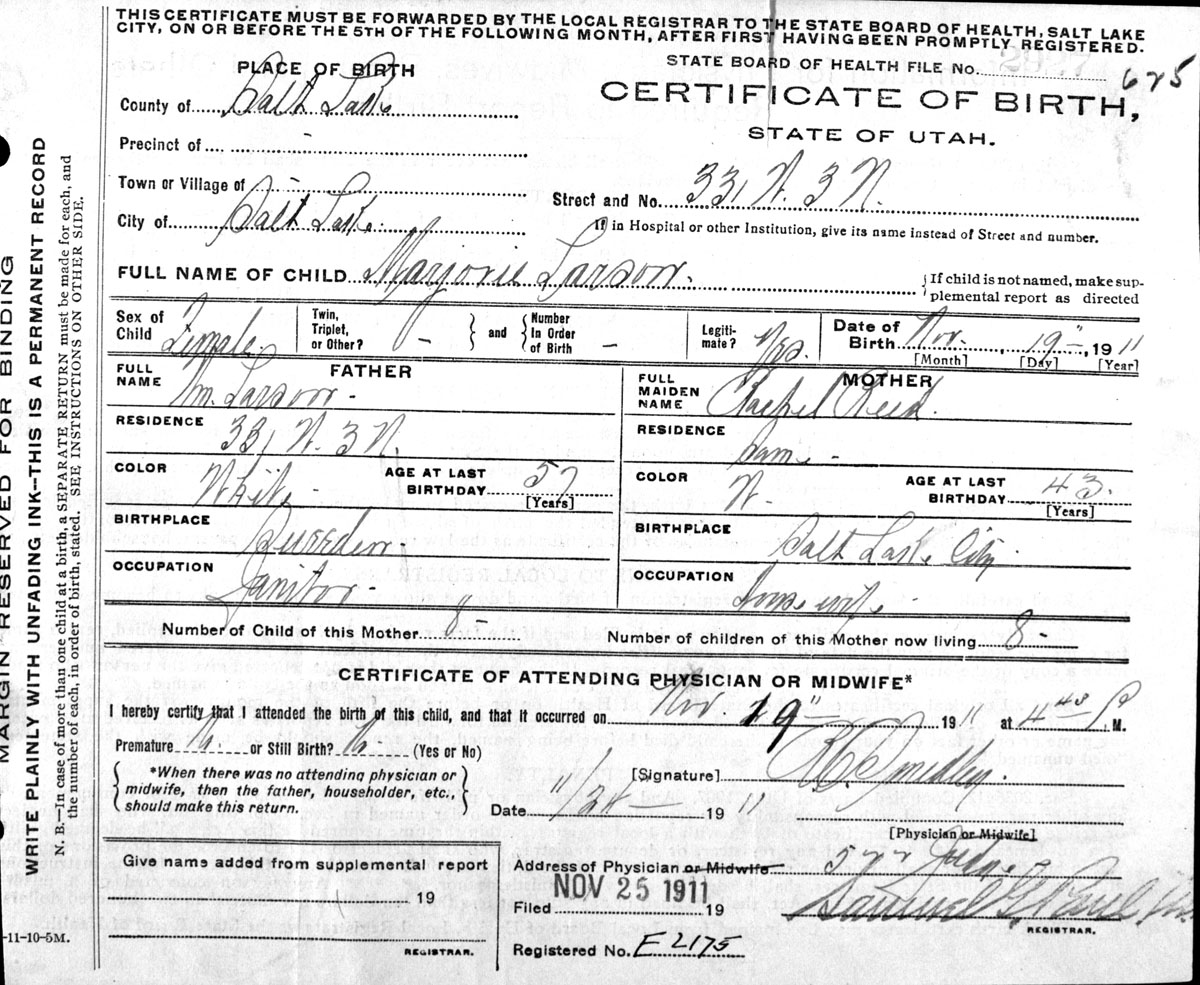 THIS CERTIFICATE MUST BE FORWARDED BY THE LOCAL REGISTRAR TO THE STATE BOARD OF HEALTH, SALT LAKE
CITY, ON OR BEFORE THE 5TH OF THE FOLLOWING MONTH, AFTER FIRST HAVING BEEN PROMPTLY REGISTERED.
STATE BOARD OF HEALTH FILE No. 625
PLACE OF BIRTH
CERTIFICATE OF BIRTH,
STATE OF UTAH.
County of Salt Lake
Precinct of -
Town or Village of -
Street and No. 331 W. 3 N.
City of Salt Lake
If in Hospital or other Institution, give its name instead of Street and number.
FULL NAME OF CHILD Marjorie Larson.
{If child is not named, make sup-
plemental report as directed
Sex of Child Female
Twin, Triplet, or Other? - } and { Number In Order of Birth -
Legiti-mate? Yes.
Date of Birth Nov. 19-, 1911
[Month] [Day] [Year]
FATHER
FULL NAME Wm. Larson-
RESIDENCE 331 W. 3 N.
COLOR White-
AGE AT LAST BIRTHDAY 57
[Years]
BIRTHPLACE Sweeden
OCCUPATION Janitor-
MOTHER
FULL MAIDEN NAME Rachel Reed.
RESIDENCE Same-
COLOR W-
AGE AT LAST BIRTHDAY 43.
[Years]
BIRTHPLACE Salt Lake City.
OCCUPATION Housewife-
Number of Child of this Mother 8-
Number of children of this Mother now living 8-
CERTIFICATE OF ATTENDING PHYSICIAN OR MIDWIFE*
I hereby certify that I attended the birth of this child, and that it occurred on Nov 19" 1911 at 4 40 P.M.
Premature No. or Still Birth? No (Yes or No)
{*When there was no attending physician or
midwife, then the father, householder, etc.,
should make this return.}
[Signature] Smedley.
Date 11/24- 1911
[Physician or Midwife]
Give name added from supplemental report
19
REGISTRAR.
Address of Physician or Midwife-
Filed NOV 25 1911 19
Samuel G. Paul
REGISTRAR.
Registered No. E2175
-11-10-5M.
MARGIN RESERVED FOR BINDING
WRITE PLAINLY WITH UNFADING INK—THIS IS A PERMANENT RECORD
N. B.—In case of more than one child at a birth, a SEPARATE RETURN must be made for each, and
the number of each, in order of birth, stated. SEE INSTRUCTIONS ON OTHER SIDE.